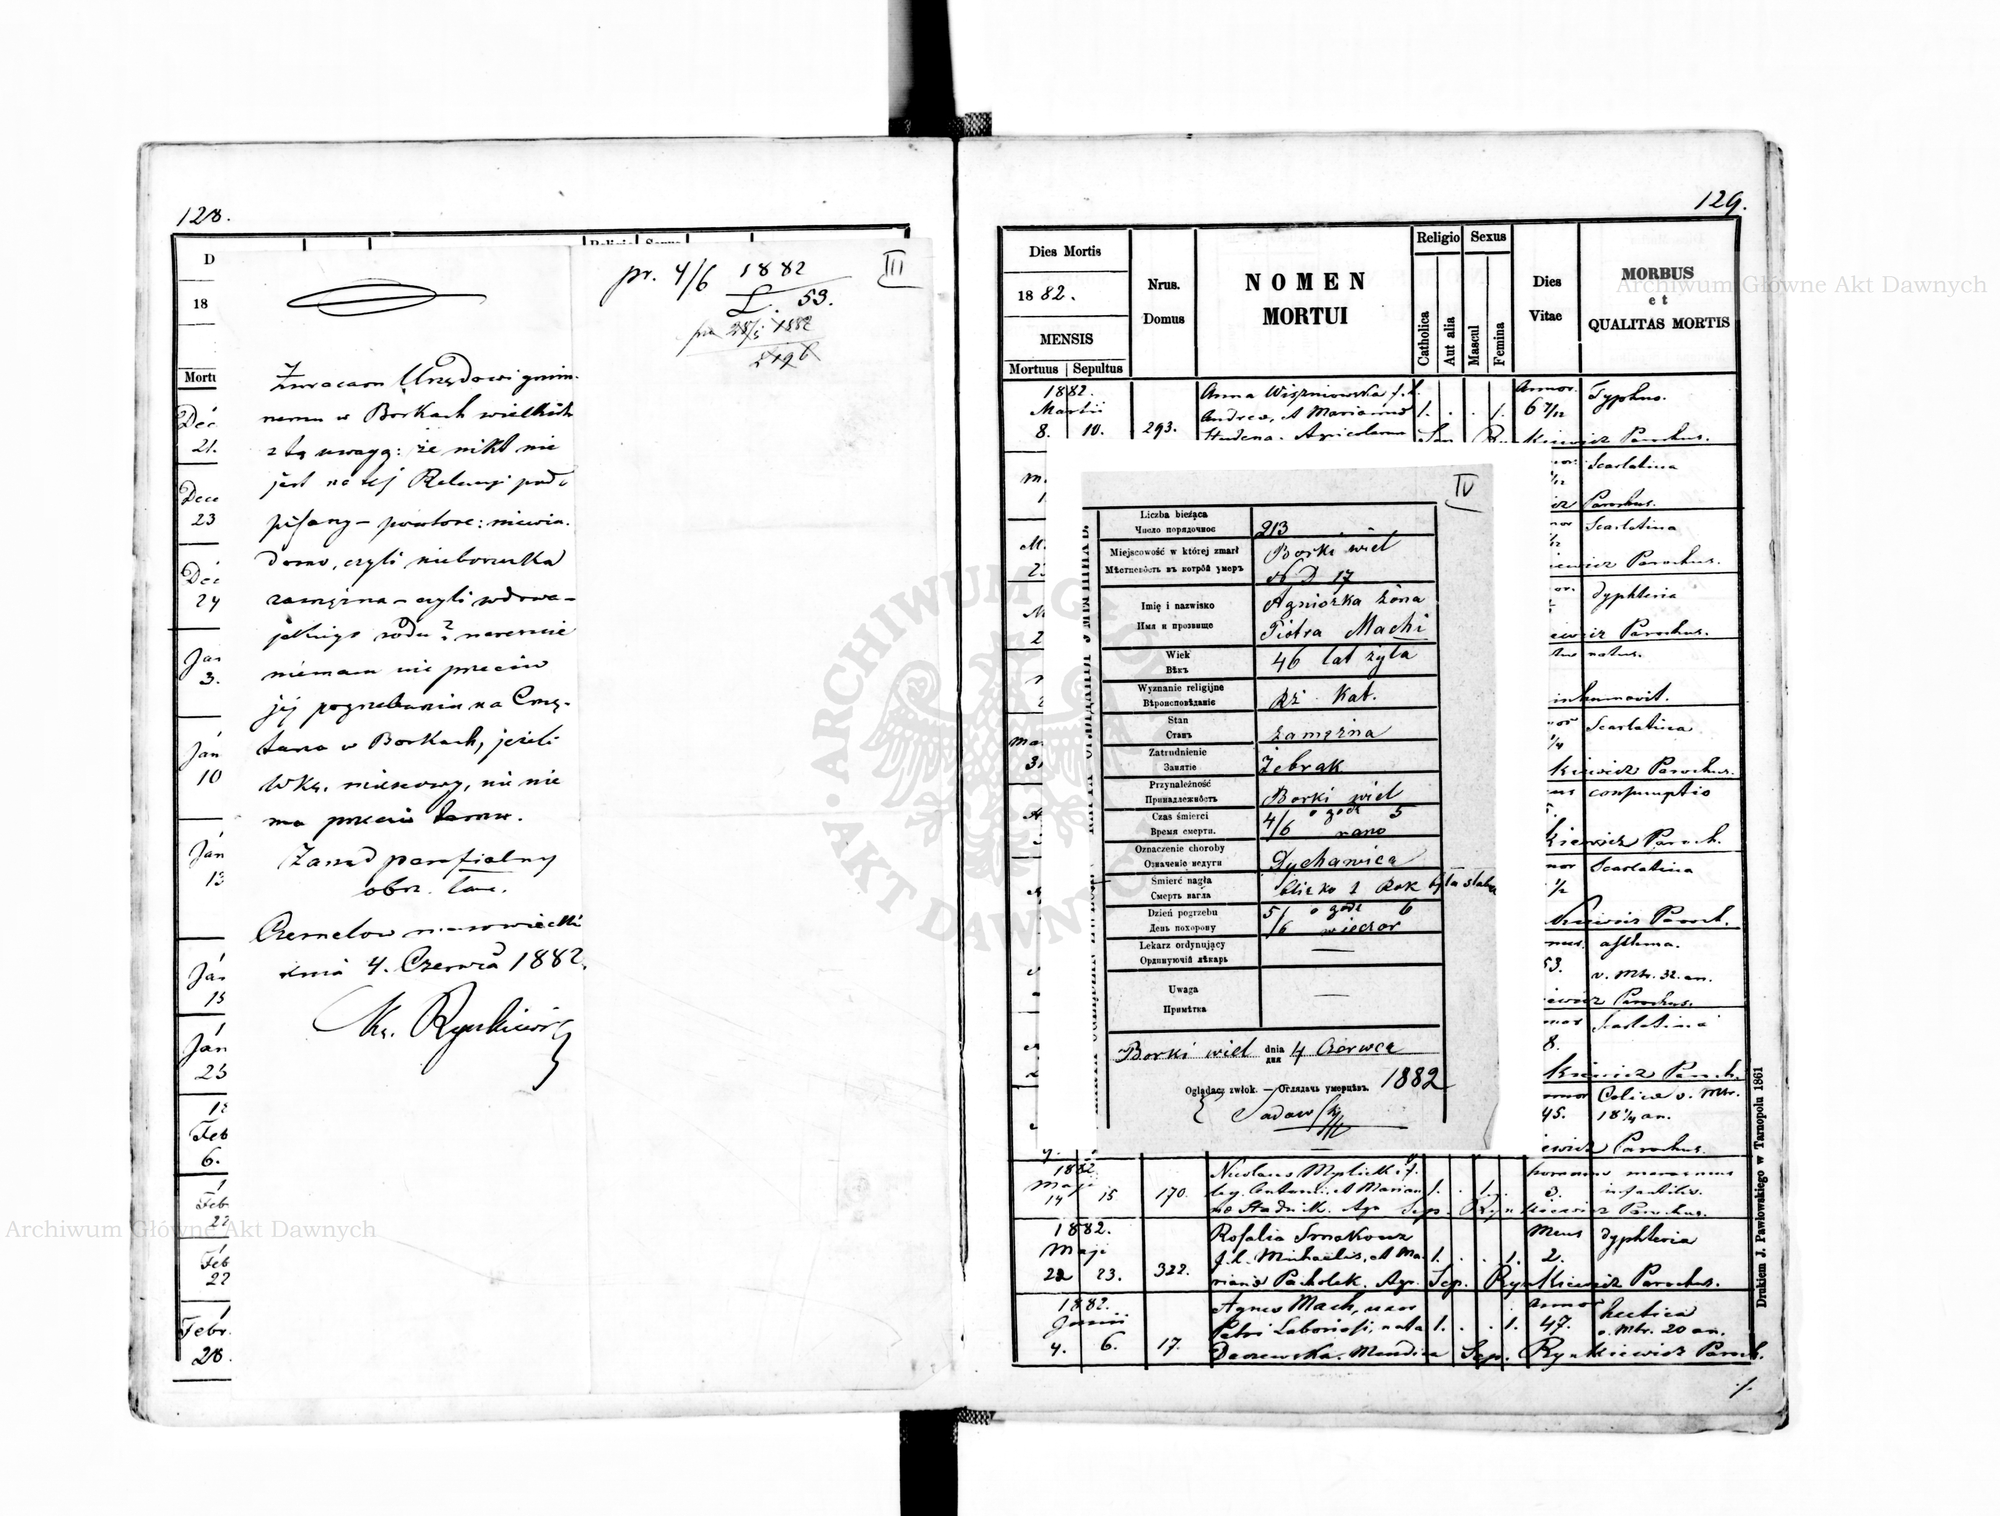 128.
D
18
Mortu
Dec
21.
Dece
23
Dec
24
Jan
3.
Jan
10
Jan
13
Jan
15
Jan
25
18
Feb
6.
1
Feb
22
Feb
22
1
Febr.
28.
pr. 4/6 1882
L. 53.
III
Zwracam Urzędowi gmin-
nemu w Borkach wielkich
z tą uwagą: że nikt nie
jest na tej Relacyi pod-
pisany – powtóre: niewia-
domo, czyli nieboszczka
zamężna – czyli wdowa –
jakiego rodu? nareszcie
niemam nic przeciw
jej pogrzebaniu na Cmę-
tarzu w Borkach, jeżeli
WKs. miejscowy, nic nie
ma przeciw temu.
Zarząd parafialny
obrz. łac.
Czernelów mazowiecki
dnia 4. Czerwca 1882.
Ks. Rynkiewicz
129.
Dies Mortis
18 82.
MENSIS
Mortuus Sepultus
Nrus.
Domus
NOMEN
MORTUI
Religio
Catholica
Aut alia
Sexus
Mascul
Femina
Dies
Vitae
MORBUS
et
QUALITAS MORTIS
1882.
Martii
8. 10. 293.
Anna Wiszniowska f. l.
Andreae, et Marianna
Hudema. Agricolarum
1. . . 1.
Annor.
6 7/12
Typhus.
Sep. Rynkiewicz Parochus.
Scarlatina
Parochus.
Scarlatina
Parochus.
dyphteria
Parochus.
natus.
inhumavit.
Scarlatina
kiewicz Parochus.
consumptio
kiewicz Paroch.
Scarlatina
kiewicz Paroch.
53.
asthma.
v. Mtr. 32. an.
Parochus.
Scarlatina
8.
kiewicz Paroch.
45.
Colica v. Mtr.
18 1/4 an.
Parochus.
IV
Liczba bieżąca
Число порядочное
213
Miejscowość w której zmarł
Мѣстневость въ котрôй умеръ
Borki wiel
N D 17
Imię i nazwisko
Имя и прозвище
Agniszka żona
Piotra Machi
Wiek
Вѣкъ
46 lat żyła
Wyznanie religijne
Вѣроисповѣданіє
Rz. Kat.
Stan
Станъ
zamężna
Zatrudnienie
Занятіе
Żebrak
Przynależność
Принадлежнôсть
Borki wiel
Czas śmierci
Время смерти.
4/6 o godz 5
rano
Oznaczenie choroby
Означеніе недуги
Dychawica
Śmierć nagła
Смерть нагла
blisko 1 Rok była słaba
Dzień pogrzebu
День похорону
5/6 o godz 6
wieczor
Lekarz ordynujący
Ординуючій лѣкарь
—
Uwaga
Примѣтка
—
Borki wiel dnia
дня 4 Czerwca
1882
Oglądacz zwłok. — Оглядачь умерцѣвъ.
1882.
Maji
14 15 170.
Nicolaus Myslicki f.
leg. Antonii et Marian
nae Stadnik. Agr.
1. . 1.
3.
marasmus
infantilis.
Sep. Rynkiewicz Parochus.
1882.
Maji
22 23. 322.
Rosalia Smakouz
f. l. Michaelis, et Ma-
rianna Pacholek. Agr.
1. . . 1.
Mens
2.
dyphteria
Sep. Rynkiewicz Parochus.
1882.
Junii
4. 6. 17.
Agnes Mach, uxor
Petri Laboriosi, nata
Daszewska. Mendica
1. . . 1.
Annor
47.
hectica
v. Mtr. 20 an.
Sep. Rynkiewicz Paroch.
Drukiem J. Pawłowskiego w Tarnopolu 1861
Archiwum Główne Akt Dawnych
Archiwum Główne Akt Dawnych
ARCHIWUM GŁÓWNE AKT DAWNYCH